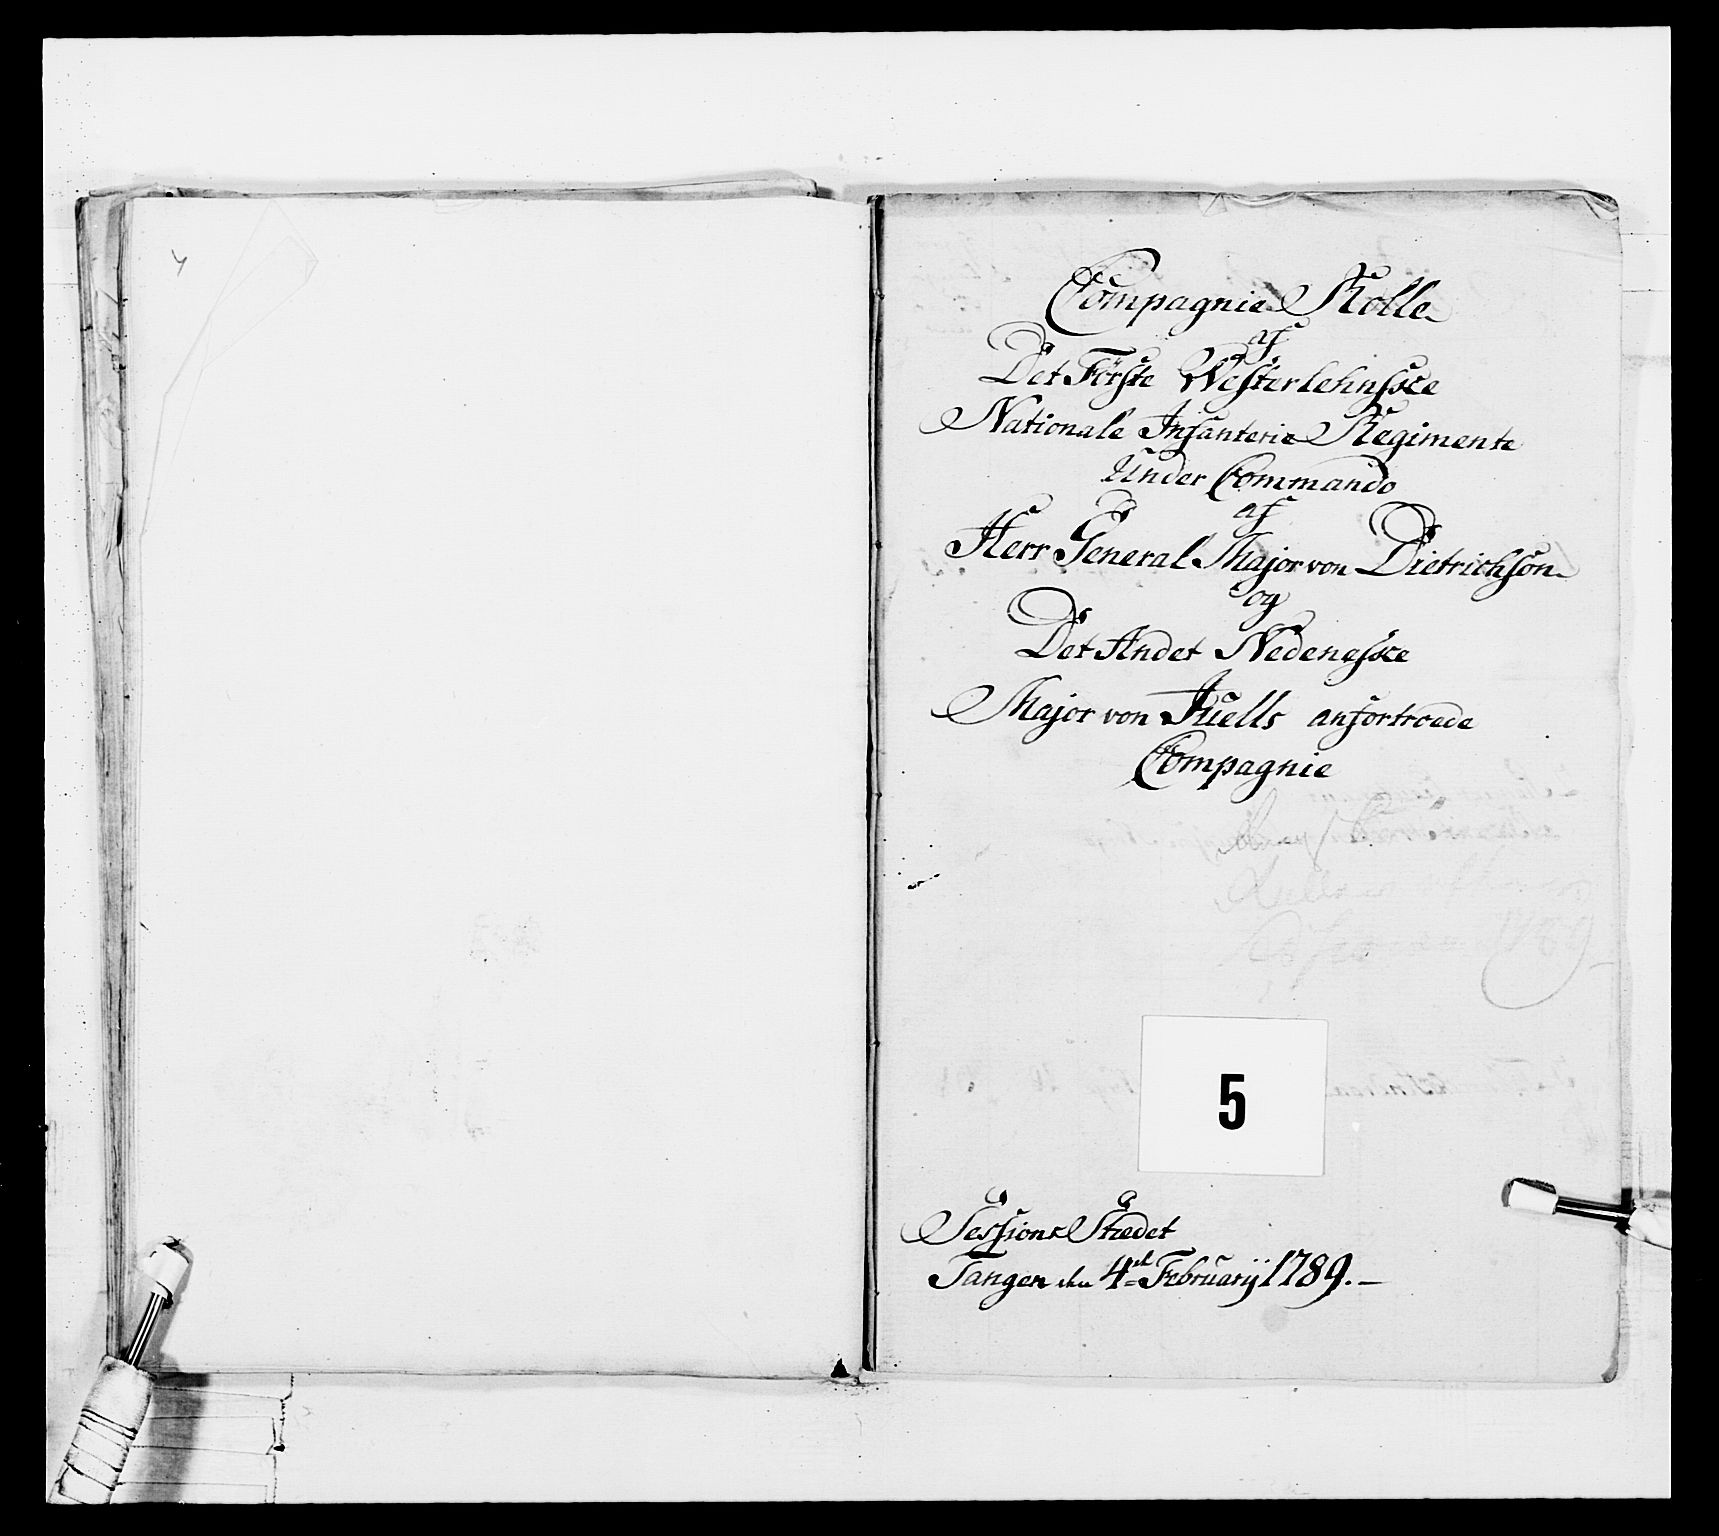 Compagnie Rolle
af
Det Förste Westerlehnske
Nationale Infanterie Regimente
Under Commando
af
Herr General Major von Dietrichson
og
Det Andet Nedenesske
Major von Juells anfortroede
Compagnie
5
Sessions Stædet
Tangen den 4de Februarij 1789.